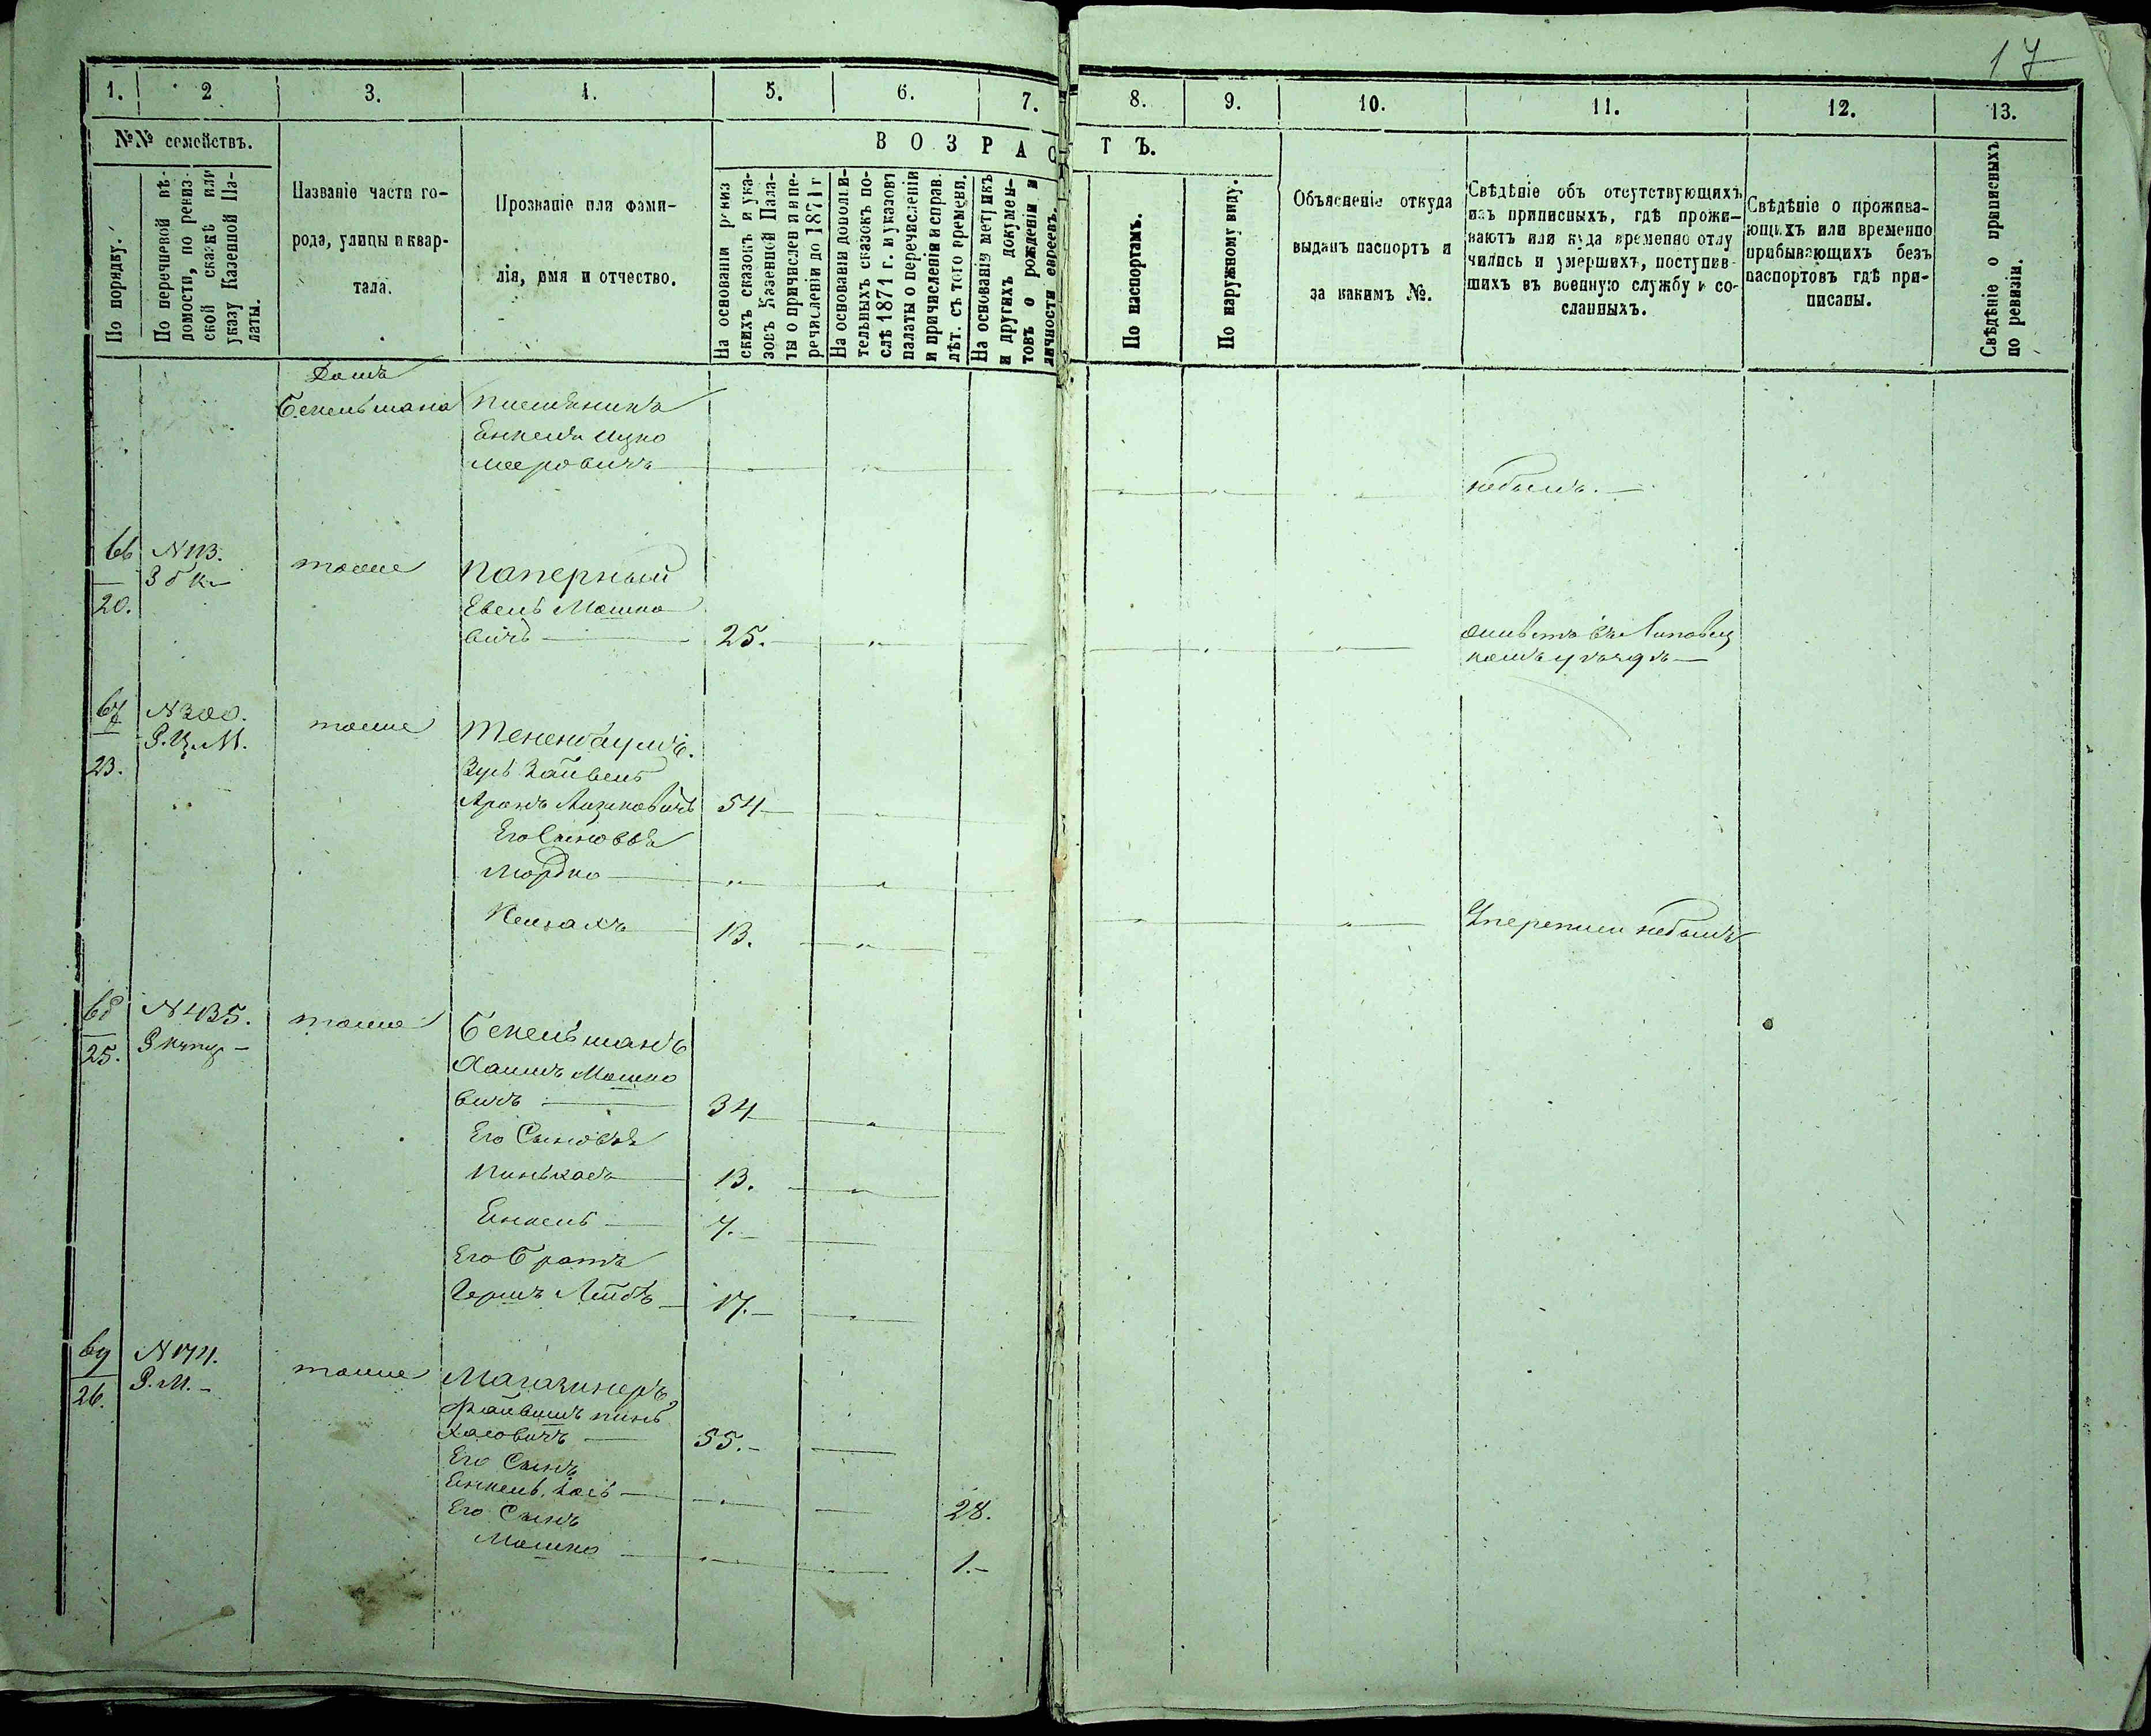 17
1. 2 3. 4. 5. 6. 7. 8. 9. 10. 11. 12. 13.
№№ семействъ.
По порядку.
По перечневой вѣ-
домости, по ревиз-
ской сказкѣ или
указу Казенной Па-
латы.
Названіе части го-
рода, улицы и квар-
тала.
Прозваніе или фами-
лія, имя и отчество.
ВОЗРАСТЪ.
На основаніи ревиз
скихъ сказокъ и ука-
зовъ Казенной Пала-
ты о причислен и пе-
речисленіи до 1871 г
На основаніи дополни-
тельныхъ сказокъ по-
слѣ 1871 г. и указовъ
палаты о перечисленіи
и причисленіи и справ.
лѣт. съ того времени.
На основаніи метрикъ
и другихъ докумен-
товъ о рожденіи и
личности евреевъ.
По паспортамъ.
По наружному виду.
Объясненіе откуда
выданъ паспортъ и
за какимъ №.
Свѣдѣніе объ отсутствующихъ
изъ приписныхъ, гдѣ прожи-
ваютъ или куда временно отлу
чились и умершихъ, поступив-
шихъ въ военную службу и со-
сланныхъ.
Свѣдѣніе о прожива-
ющихъ или временно
прибывающихъ безъ
паспортовъ гдѣ при-
писаны.
Свѣдѣніе о приписныхъ
по ревизіи.
Домъ
Бекельмана Племяникъ
Енкель Ицко
Мееровичъ
небылъ.
66 N 113. тоже Паперный
20.
Евель Мошко
вичъ 25. живетъ въ Липовец
комъ уѣздѣ
67 N 300. тоже Тененбаумъ.
23. З. Ц. М.
Зусь Зайвель
Аронъ Лизковичъ 54
Его Сыновья
Мордко
Кельманъ 13. Уперепеси небылъ
68 N 435. тоже Бекельманъ
25. З купц
Хаимъ Мошко
вичъ 34
Его Сыновья
Пинькасъ 13.
Енкель 7.
Его Братъ
Гершъ Лейбъ 17.
69 N 174. тоже Магазинеръ
26. З. М.
Файвишъ Пинь
хасовичъ 55.
Его Сынъ
Енкель Іось 28.
Его Сынъ
Мошко 1.